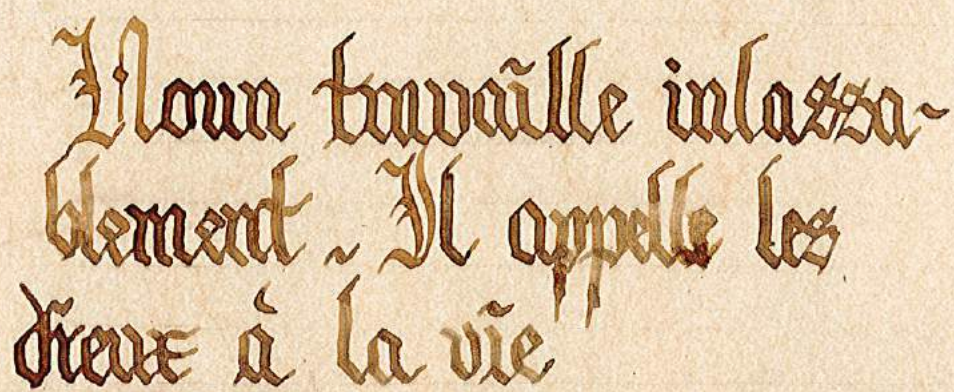 Noun travaille inlassa-
blement. Il appelle les
dieux à la vie